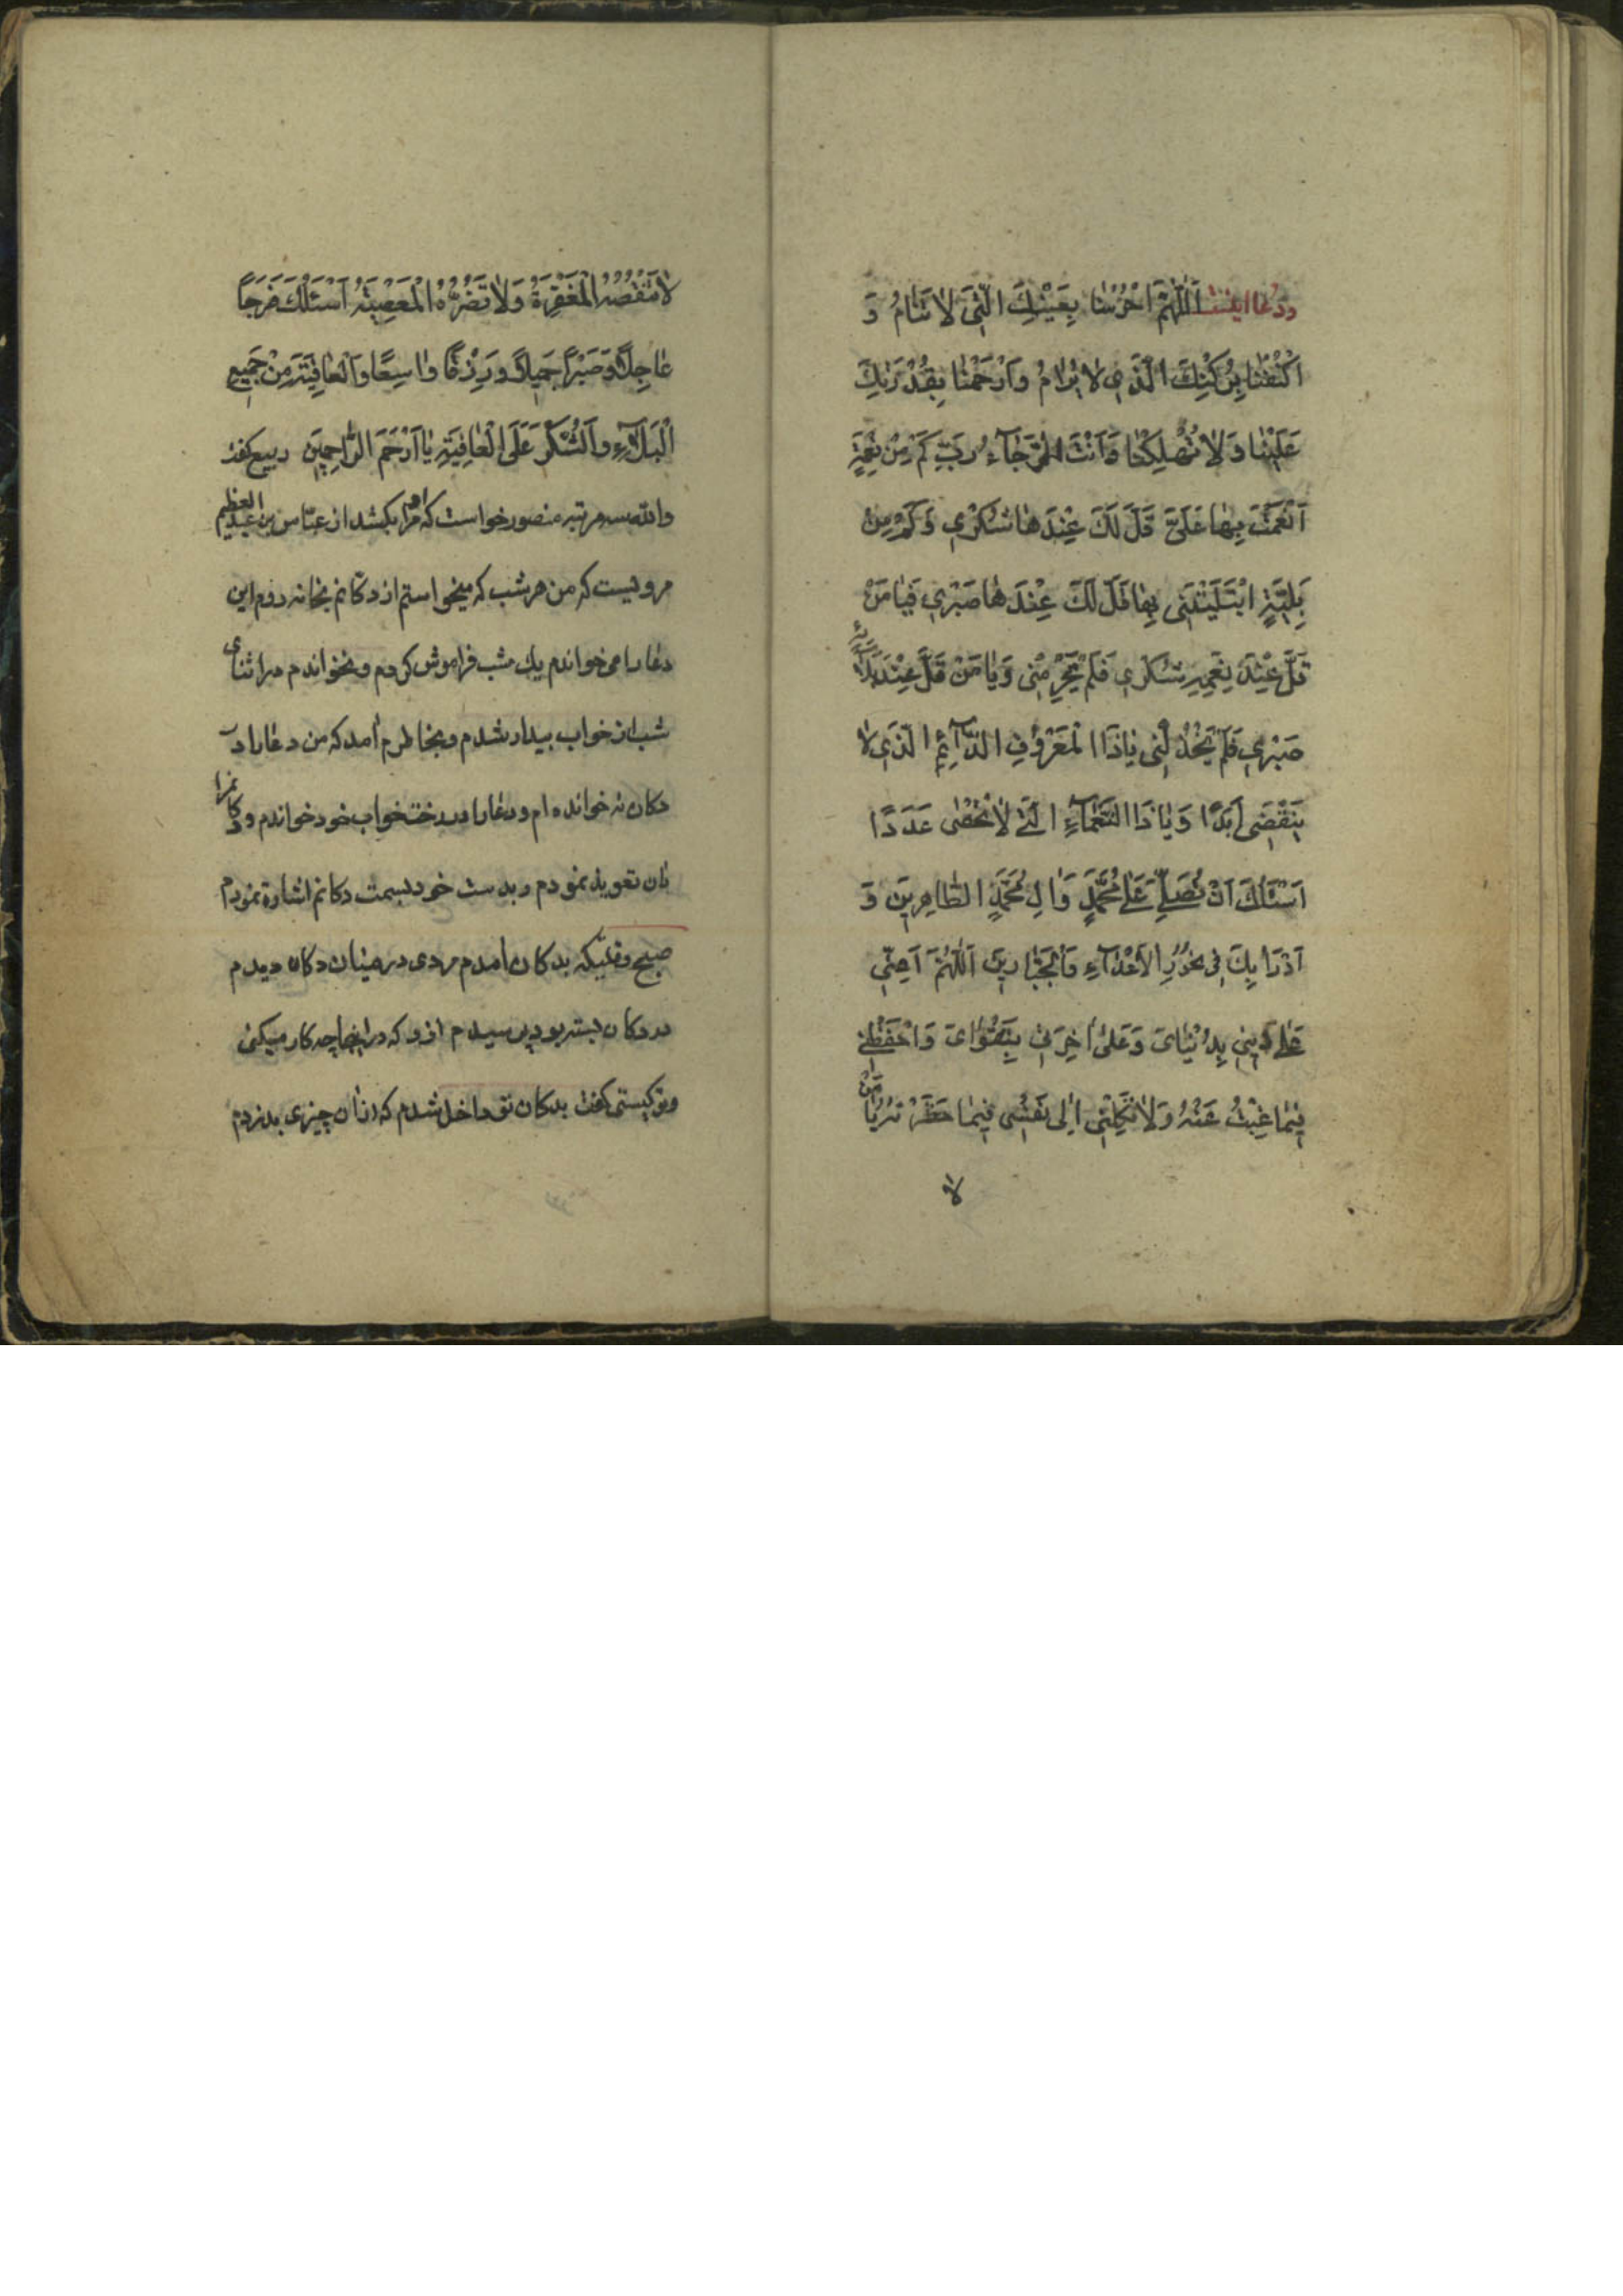 ودعا اینست اَللّهُمَّ احْرُسْنا بِعَيْنِكَ الَّتي لا تَنامُ وَ
اكْنُفْنا بِرُكْنِكَ الَّذي لا يُرامُ وَارْحَمْنا بِقُدْرَتِكَ
عَلَيْنا وَلا تُهْلِكْنا وَاَنْتَ الرَّجآءُ رَبِّ كَمْ مِنْ نِعْمَةٍ
اَنْعَمْتَ بِها عَلَيَّ قَلَّ لَكَ عِنْدَها شُكْري وَكَمْ مِنْ
بَلِيَّةٍ ابْتَلَيْتَني بِها قَلَّ لَكَ عِنْدَها صَبْري فَيا مَنْ
قَلَّ عِنْدَ نِعَمِهِ شُكْري فَلَمْ يَحْرِمْني وَيا مَنْ قَلَّ عِنْدَ بَلائِهِ
صَبْري فَلَمْ يَخْذُلْني يا ذَا الْمَعْرُوفِ الدّآئِمِ الَّذي لا
يَنْقَضي اَبَدًا وَيا ذَا النَّعْمآءِ الَّتي لا تُحْصٰى عَدَدًا
اَسْئَلُكَ اَنْ تُصَلِّيَ عَلٰى مُحَمَّدٍ وَالِ مُحَمَّدٍ الطّاهِرينَ وَ
اَدْرَأُ بِكَ في نُحُورِ الاَعْدآءِ وَالْجَبّارينَ اَللّهُمَّ اَعِنّي
عَلٰى ديني بِدُنْيايَ وَعَلٰى اخِرَتي بِتَقْوايَ وَاحْفَظْني
فيما غِبْتُ عَنْهُ وَلا تَكِلْني اِلى نَفْسي فيما حَظَرْتَهُ يا مَنْ
لا
لا تَنْقُصُهُ الْمَغْفِرَةُ وَلا تَضُرُّهُ الْمَعْصِيَةُ اَسْئَلُكَ فَرَجًا
عاجِلاً وَصَبْرًا جَميلاً وَرِزْقًا واسِعًا وَالْعافِيَةَ مِنْ جَميعِ
الْبَلآءِ وَالشُّكْرَ عَلَى الْعافِيَةِ يا اَرْحَمَ الرّاحِمينَ ربیع گفت
والله سه مرتبه منصور خواست که مرا بکشد از عباس بن عبد العظیم
مرویست که من هر شب که میخواستم از دکانم بخانه روم این
دعا را می خواندم یك شب فراموش کردم و نخواندم در اثنای
شب از خواب بیدار شدم و بخاطرم آمد که من دعا را در
دکان نه خوانده ام و دعا را در رخت خواب خود خواندم و دکانرا
بآن تعویذ نمودم و بدست خود بسمت دکانم اشارة نمودم
صبح وقتیکه بدکان آمدم مردی در میان دکان دیدم
در دکان بسته بود پرسیدم از و که در اینجا چه کار میکنی
و تو کیستی گفت بدکان تو داخل شدم که از آن چیزی بدزدم